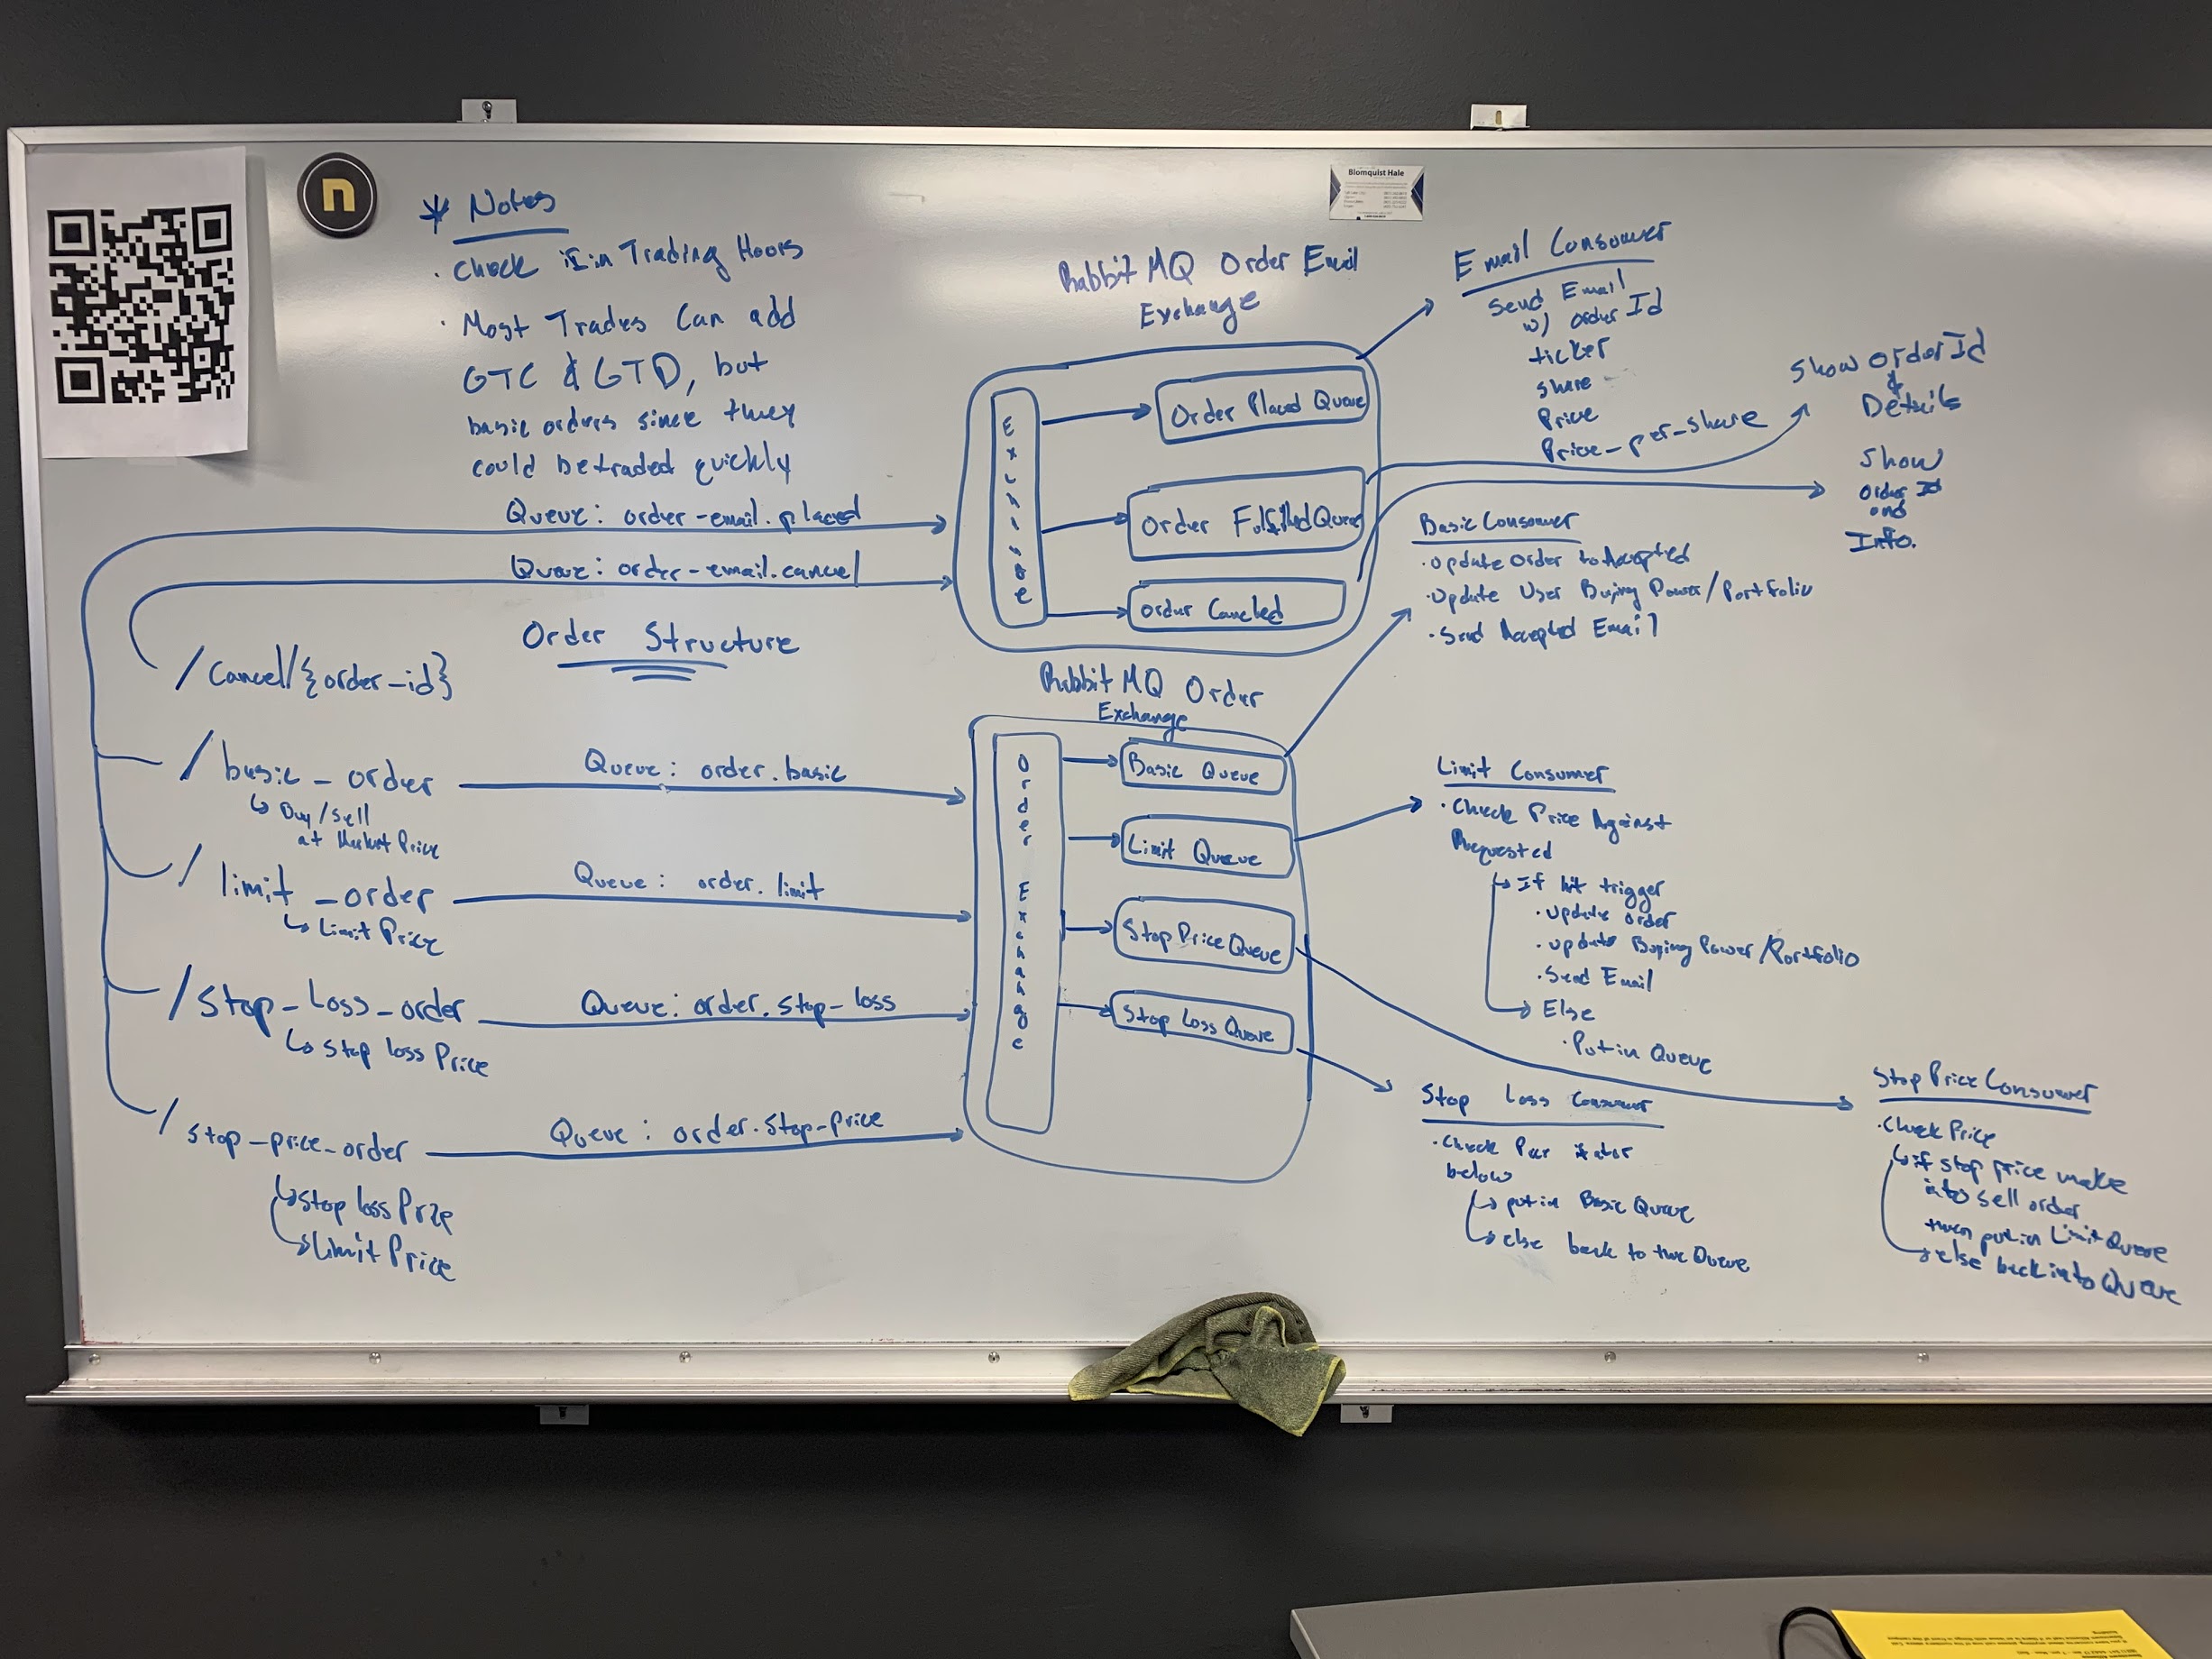 n
Blomquist Hale
* Notes
· Check if in Trading Hours
· Most Trades Can add
GTC & GTD, but
basic orders since they
could be traded quickly
Queue: order-email.placed
Queue: order-email.cancel
Order Structure
/cancel/{order-id}
/basic_order
↳ Buy/Sell
at Market Price
Queue: order.basic
/limit_order
↳ Limit Price
Queue: order.limit
/Stop_Loss_order
↳ Stop loss Price
Queue: order.stop-loss
/stop_price_order
↳ Stop loss Price
↳ Limit Price
Queue: order.stop-price
Rabbit MQ Order Email
Exchange
Exchange
Order Placed Queue
Order Fulfilled Queue
Order Canceled
Rabbit MQ Order
Exchange
Order Exchange
Basic Queue
Limit Queue
Stop Price Queue
Stop Loss Queue
Email Consumer
Send Email
w/ order Id
ticker
share
Price
Price-per-share
Show Order Id
&
Details
Show
Order Id
and
Info.
Basic Consumer
· Update Order to Accepted
· Update User Buying Power/Portfolio
· Send Accepted Email
Limit Consumer
· Check Price Against
Requested
↳ If hit trigger
· Update order
· Update Buying Power/Portfolio
· Send Email
↳ Else
· Put in Queue
Stop Loss Consumer
· Check
below
↳ put in Basic Queue
↳ else back to the Queue
Stop Price Consumer
· Check Price
↳ if stop price make
into sell order
then put in Limit Queue
↳ else back into Queue